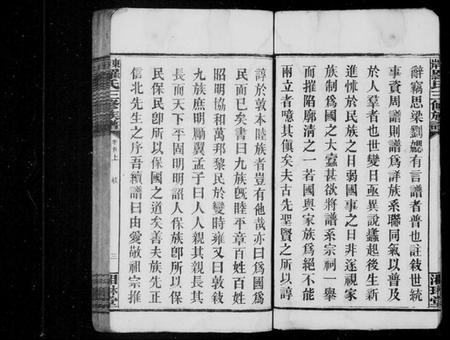 辭竊思梁劉勰有言譜者普也註敍世統
事資周譜則譜爲詳族系聯同氣以普及
於人羣者也世變日亟異說蠭起後生新
進怵於民族之日弱國事之日非遂視家
族制爲國之大蠹甚欲將譜系宗祠一舉
而摧陷廓淸之一若國與家族爲絕不能
兩立者噫其傎矣夫古先聖賢之所以諄
諄於敦本睦族者豈有他哉亦曰爲國爲
民而已矣書曰九族旣睦平章百姓百姓
昭明協和萬邦黎民於變時雍又曰敦敍
九族庶明勵翼孟子曰人人親其親長其
長而天下平固明明詔人保族卽所以保
民保民卽所以保國之道矣善夫族先正
信北先生之序吾續譜曰由愛敬祖宗推
氏三修族譜
卷首上
三